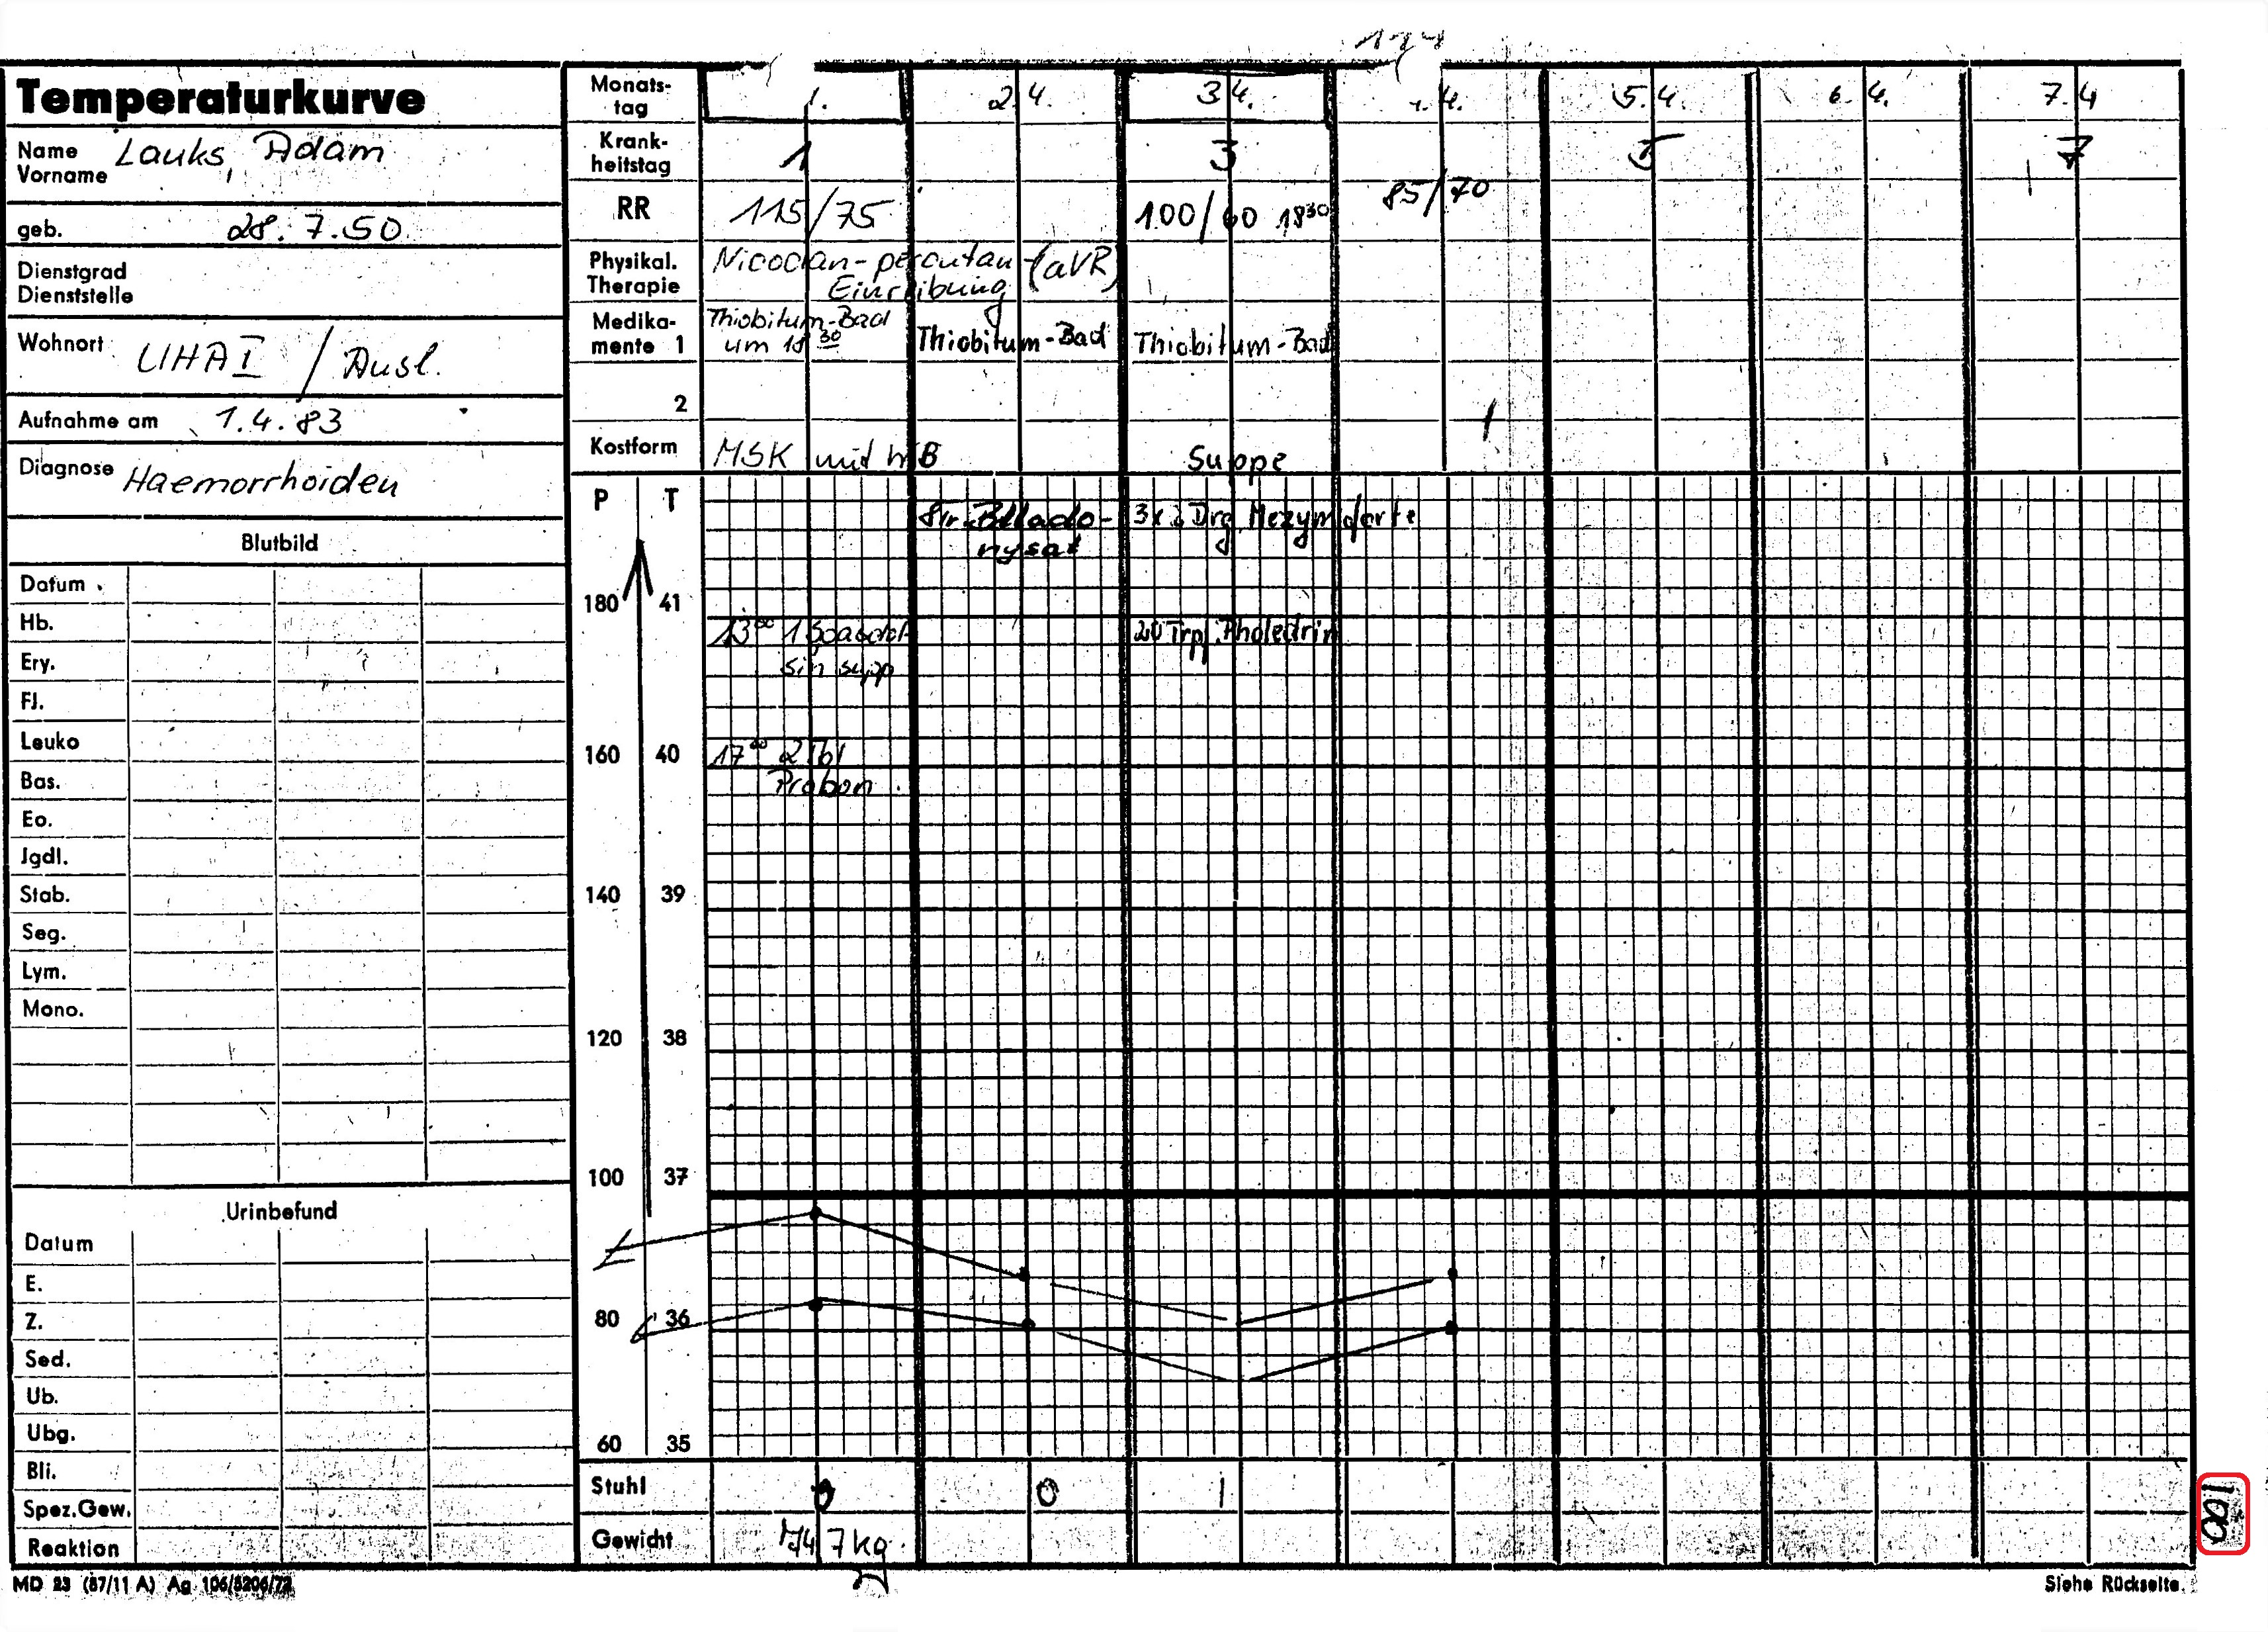 174
Temperaturkurve
Name Lauks, Adam
Vorname
geb. 28. 7. 50
Dienstgrad
Dienststelle
Wohnort UHA I / Ausl.
Aufnahme am 1. 4. 83
Diagnose Haemorrhoiden
Blutbild
Datum
Hb.
Ery.
FJ.
Leuko
Bas.
Eo.
Jgdl.
Stab.
Seg.
Lym.
Mono.
Urinbefund
Datum
E.
Z.
Sed.
Ub.
Ubg.
Bli.
Spez.Gew.
Reaktion
MD 23 (87/11 A) Ag 106/5206/72
Monats-
tag 1. 2.4. 3 4. 4. 5.4. 6. 4. 7.4
Krank-
heitstag 1 3 5 7
RR 115/75 100/60 18 30 85/70
Physikal. percutan (aVR)
Therapie Einreibung
Medika- Thiobitum-Bad
mente 1 um 18 30 Thiobitum-Bad Thiobitum-Bad
2
Kostform MSK mit WB Suppe
P T
Bellado- 3x2 Drg. Mezym forte
nysat
180 41
13 00 1
supp
20 Trp. Pholedrin
160 40
17 00 2 Tbl
Probon
140 39
120 38
100 37
80 36
60 35
Stuhl 0 0 1
Gewicht 74 7 kg
Siehe Rückseite.
100